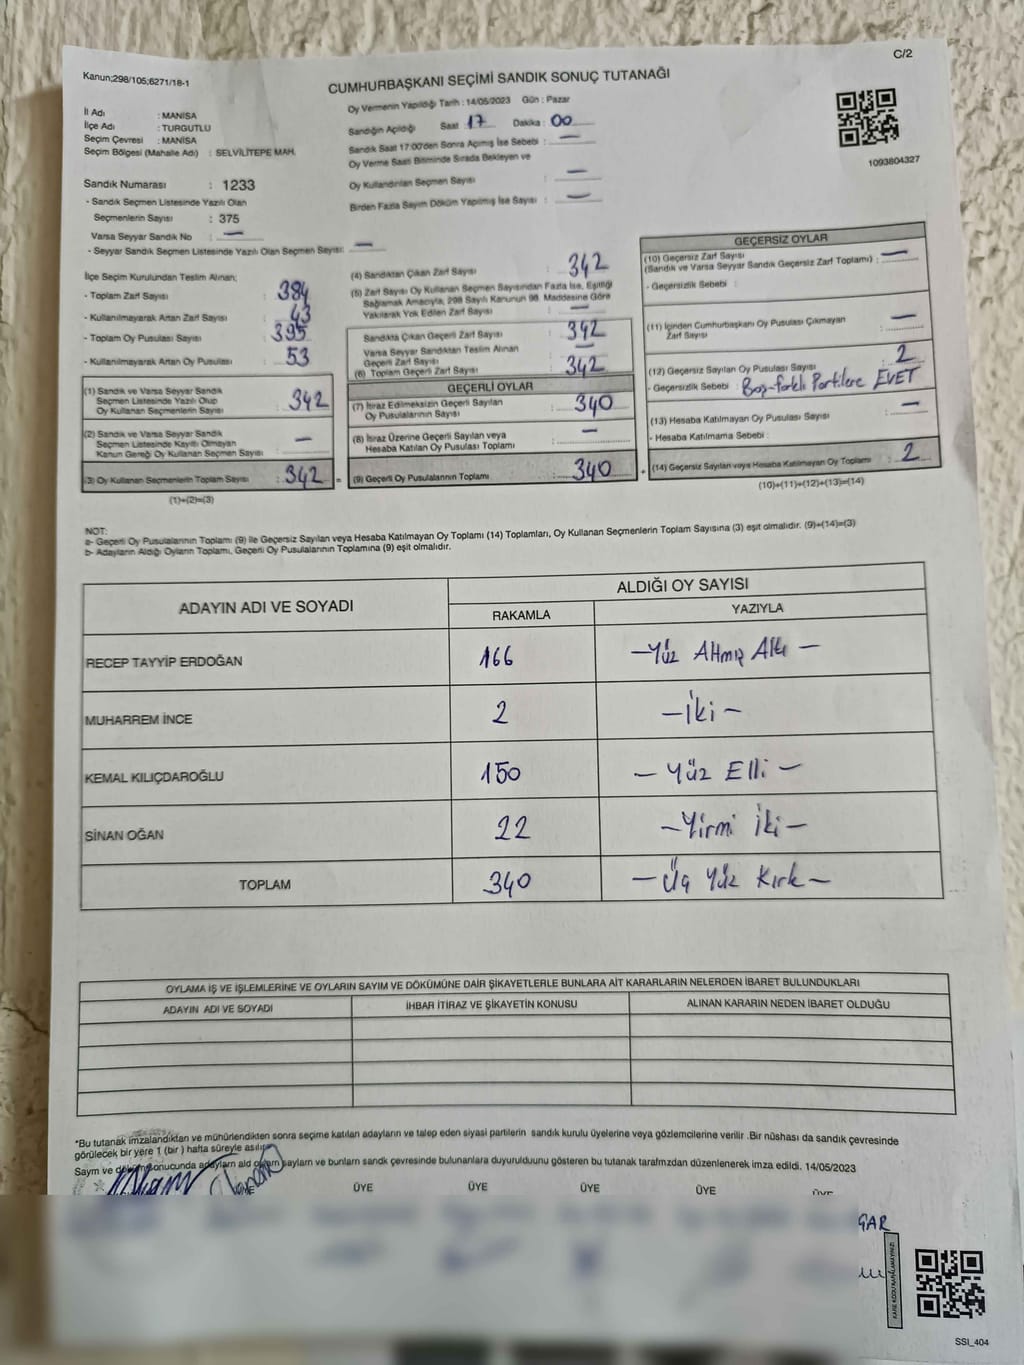 C/2
Kanun;298/105;6271/18-1
CUMHURBAŞKANI SEÇİMİ SANDIK SONUÇ TUTANAĞI
İl Adı : MANİSA
İlçe Adı : TURGUTLU
Seçim Çevresi : MANİSA
Seçim Bölgesi (Mahalle Adı) : SELVİLİTEPE MAH.
Sandık Numarası : 1233
- Sandık Seçmen Listesinde Yazılı Olan
Seçmenlerin Sayısı : 375
Varsa Seyyar Sandık No : —
- Seyyar Sandık Seçmen Listesinde Yazılı Olan Seçmen Sayısı: —
Oy Vermenin Yapıldığı Tarih : 14/05/2023 Gün : Pazar
Sandığın Açıldığı Saat : 17 Dakika : 00
Sandık Saat 17:00'den Sonra Açılmış İse Sebebi : —
Oy Verme Saati Bitiminde Sırada Bekleyen ve
Oy Kullandırılan Seçmen Sayısı : —
Birden Fazla Sayım Döküm Yapılmış İse Sayısı : —
1093804327
İlçe Seçim Kurulundan Teslim Alınan;
- Toplam Zarf Sayısı : 384
- Kullanılmayarak Artan Zarf Sayısı : 43
- Toplam Oy Pusulası Sayısı : 395
- Kullanılmayarak Artan Oy Pusulası : 53
(1) Sandık ve Varsa Seyyar Sandık
Seçmen Listesinde Yazılı Olup
Oy Kullanan Seçmenlerin Sayısı : 342
(2) Sandık ve Varsa Seyyar Sandık
Seçmen Listesinde Kayıtlı Olmayan
Kanun Gereği Oy Kullanan Seçmen Sayısı : —
(3) Oy Kullanan Seçmenlerin Toplam Sayısı : 342 =
(1)+(2)=(3)
(4) Sandıktan Çıkan Zarf Sayısı : 342
(5) Zarf Sayısı Oy Kullanan Seçmen Sayısından Fazla İse, Eşitliği
Sağlamak Amacıyla, 298 Sayılı Kanunun 98. Maddesine Göre
Yakılarak Yok Edilen Zarf Sayısı : —
Sandıkta Çıkan Geçerli Zarf Sayısı : 342
Varsa Seyyar Sandıktan Teslim Alınan
Geçerli Zarf Sayısı : —
(6) Toplam Geçerli Zarf Sayısı : 342
GEÇERLİ OYLAR
(7) İtiraz Edilmeksizin Geçerli Sayılan
Oy Pusulalarının Sayısı : 340
(8) İtiraz Üzerine Geçerli Sayılan veya
Hesaba Katılan Oy Pusulası Toplamı : —
(9) Geçerli Oy Pusulalarının Toplamı : 340 +
GEÇERSİZ OYLAR
(10) Geçersiz Zarf Sayısı
(Sandık ve Varsa Seyyar Sandık Geçersiz Zarf Toplamı) : —
- Geçersizlik Sebebi :
(11) İçinden Cumhurbaşkanı Oy Pusulası Çıkmayan
Zarf Sayısı : —
(12) Geçersiz Sayılan Oy Pusulası Sayısı : 2
- Geçersizlik Sebebi : Boş-farklı Partilere EVET
(13) Hesaba Katılmayan Oy Pusulası Sayısı : —
- Hesaba Katılmama Sebebi :
(14) Geçersiz Sayılan veya Hesaba Katılmayan Oy Toplamı : 2
(10)+(11)+(12)+(13)=(14)
NOT:
a- Geçerli Oy Pusulalarının Toplamı (9) ile Geçersiz Sayılan veya Hesaba Katılmayan Oy Toplamı (14) Toplamları, Oy Kullanan Seçmenlerin Toplam Sayısına (3) eşit olmalıdır. (9)+(14)=(3)
b- Adayların Aldığı Oyların Toplamı, Geçerli Oy Pusulalarının Toplamına (9) eşit olmalıdır.
ADAYIN ADI VE SOYADI
ALDIĞI OY SAYISI
RAKAMLA YAZIYLA
RECEP TAYYİP ERDOĞAN 166 —Yüz Altmış Altı —
MUHARREM İNCE 2 —İki—
KEMAL KILIÇDAROĞLU 150 — Yüz Elli —
SİNAN OĞAN 22 —Yirmi İki—
TOPLAM 340 —Üç Yüz Kırk—
OYLAMA İŞ VE İŞLEMLERİNE VE OYLARIN SAYIM VE DÖKÜMÜNE DAİR ŞİKAYETLERLE BUNLARA AİT KARARLARIN NELERDEN İBARET BULUNDUKLARI
ADAYIN ADI VE SOYADI İHBAR İTİRAZ VE ŞİKAYETİN KONUSU ALINAN KARARIN NEDEN İBARET OLDUĞU
*Bu tutanak imzalandıktan ve mühürlendikten sonra seçime katılan adayların ve talep eden siyasi partilerin sandık kurulu üyelerine veya gözlemcilerine verilir .Bir nüshası da sandık çevresinde
görülecek bir yere 1 (bir ) hafta süreyle asılır.
Sayım ve döküm sonucunda adayların aldığı oyların sayıları ve bunların sandık çevresinde bulunanlara duyurulduğunu gösteren bu tutanak tarafımızdan düzenlenerek imza edildi. 14/05/2023
ÜYE ÜYE ÜYE ÜYE ÜYE
SSI_404